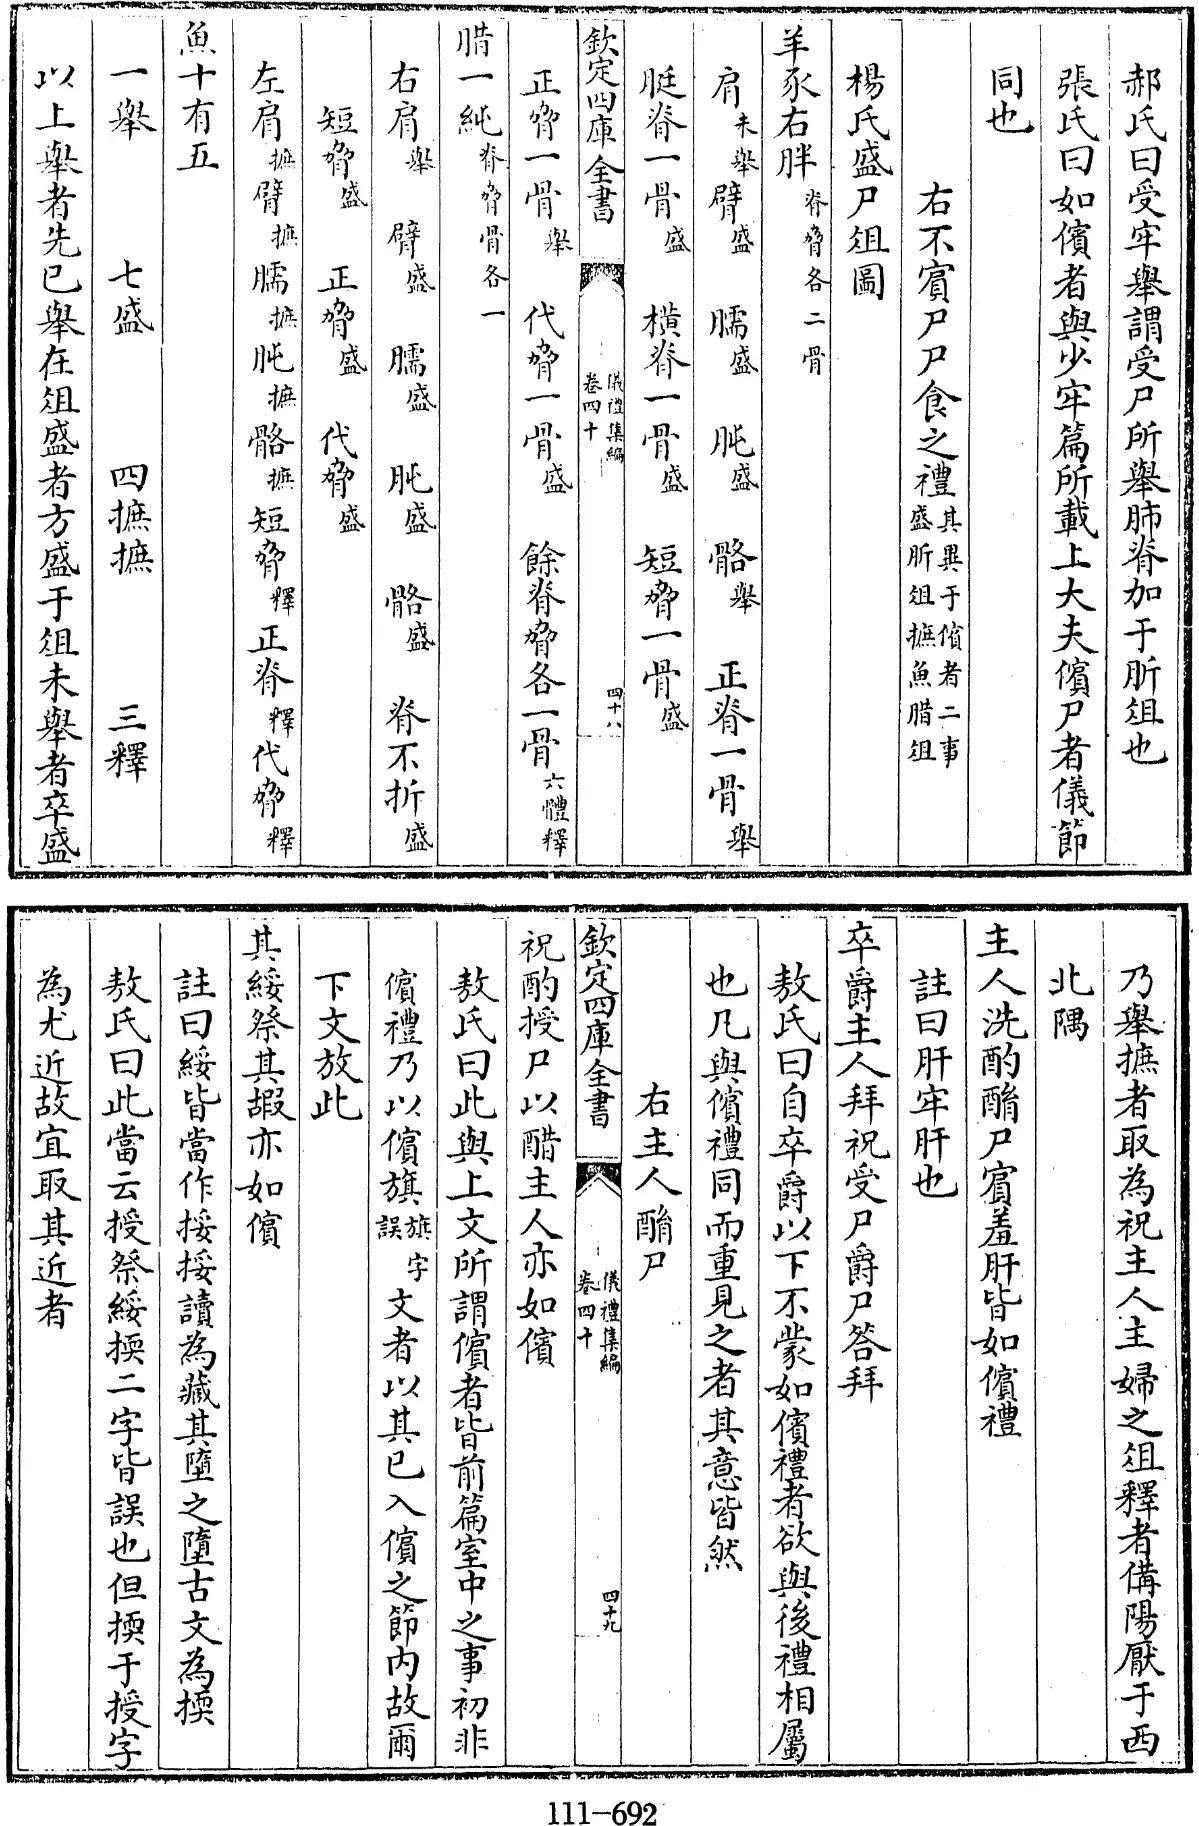 郝氏曰受牢舉謂受尸所舉肺脊加于肵俎也
張氏曰如儐者與少牢篇所載上大夫儐尸者儀節
同也
右不賓尸尸食之禮其異于儐者二事
盛肵俎摭魚腊俎
楊氏盛尸俎圖
羊豕右胖脊脅各二骨
肩未舉臂盛 臑盛 肫盛 骼舉 正脊一骨舉
脡脊一骨盛 橫脊一骨盛 短脅一骨盛
欽定四庫全書 儀禮集編
卷四十 四十八
正脅一骨舉 代脅一骨盛 餘脊脅各一骨六體釋
腊一純脊脅骨各一
右肩舉 臂盛 臑盛 肫盛 骼盛 脊不折盛
短脅盛 正脅盛 代脅盛
左肩摭臂摭臑摭肫摭骼摭短脅釋正脊釋代脅釋
魚十有五
一舉 七盛 四摭摭 三釋
以上舉者先已舉在俎盛者方盛于俎未舉者卒盛
乃舉摭者取為祝主人主婦之俎釋者備陽厭于西
北隅
主人洗酌酳尸賓羞肝皆如儐禮
註曰肝牢肝也
卒爵主人拜祝受尸爵尸答拜
敖氏曰自卒爵以下不蒙如儐禮者欲與後禮相屬
也凡與儐禮同而重見之者其意皆然
右主人酳尸
欽定四庫全書 儀禮集編
卷四十 四十九
祝酌授尸以醋主人亦如儐
敖氏曰此與上文所謂儐者皆前篇室中之事初非
儐禮乃以儐旗旗字
誤文者以其已入儐之節內故爾
下文放此
其綏祭其嘏亦如儐
註曰綏皆當作挼挼讀為藏其墮之墮古文為擩
敖氏曰此當云授祭綏擩二字皆誤也但擩于授字
為尤近故宜取其近者
111-692